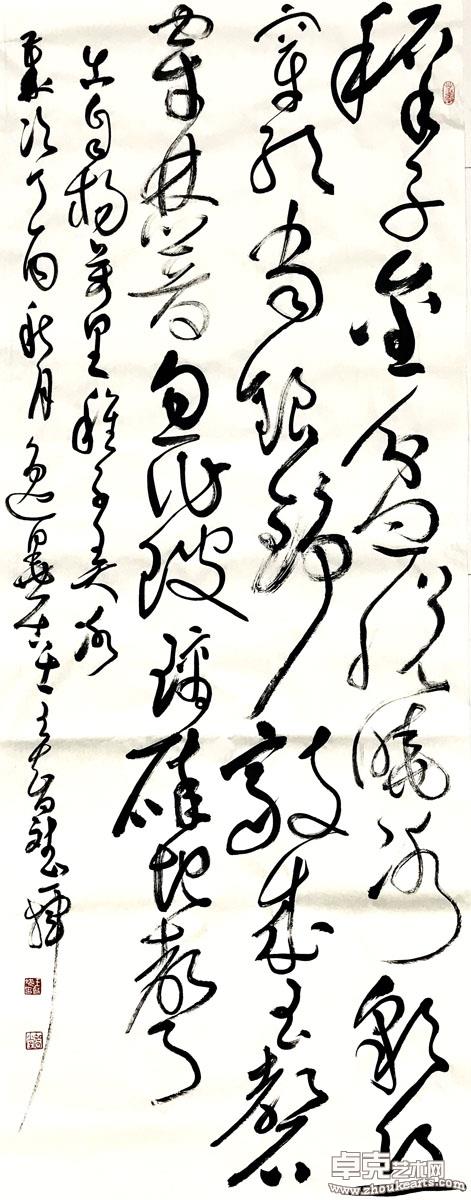 稚子金盆脱曉冰彩絲
穿取當銀錚敲成玉磬
穿林響忽作玻璃碎地聲
出自楊萬里稚子弄冰
歲次丁酉秋月
卓克艺术网
www.zhoukearts.com